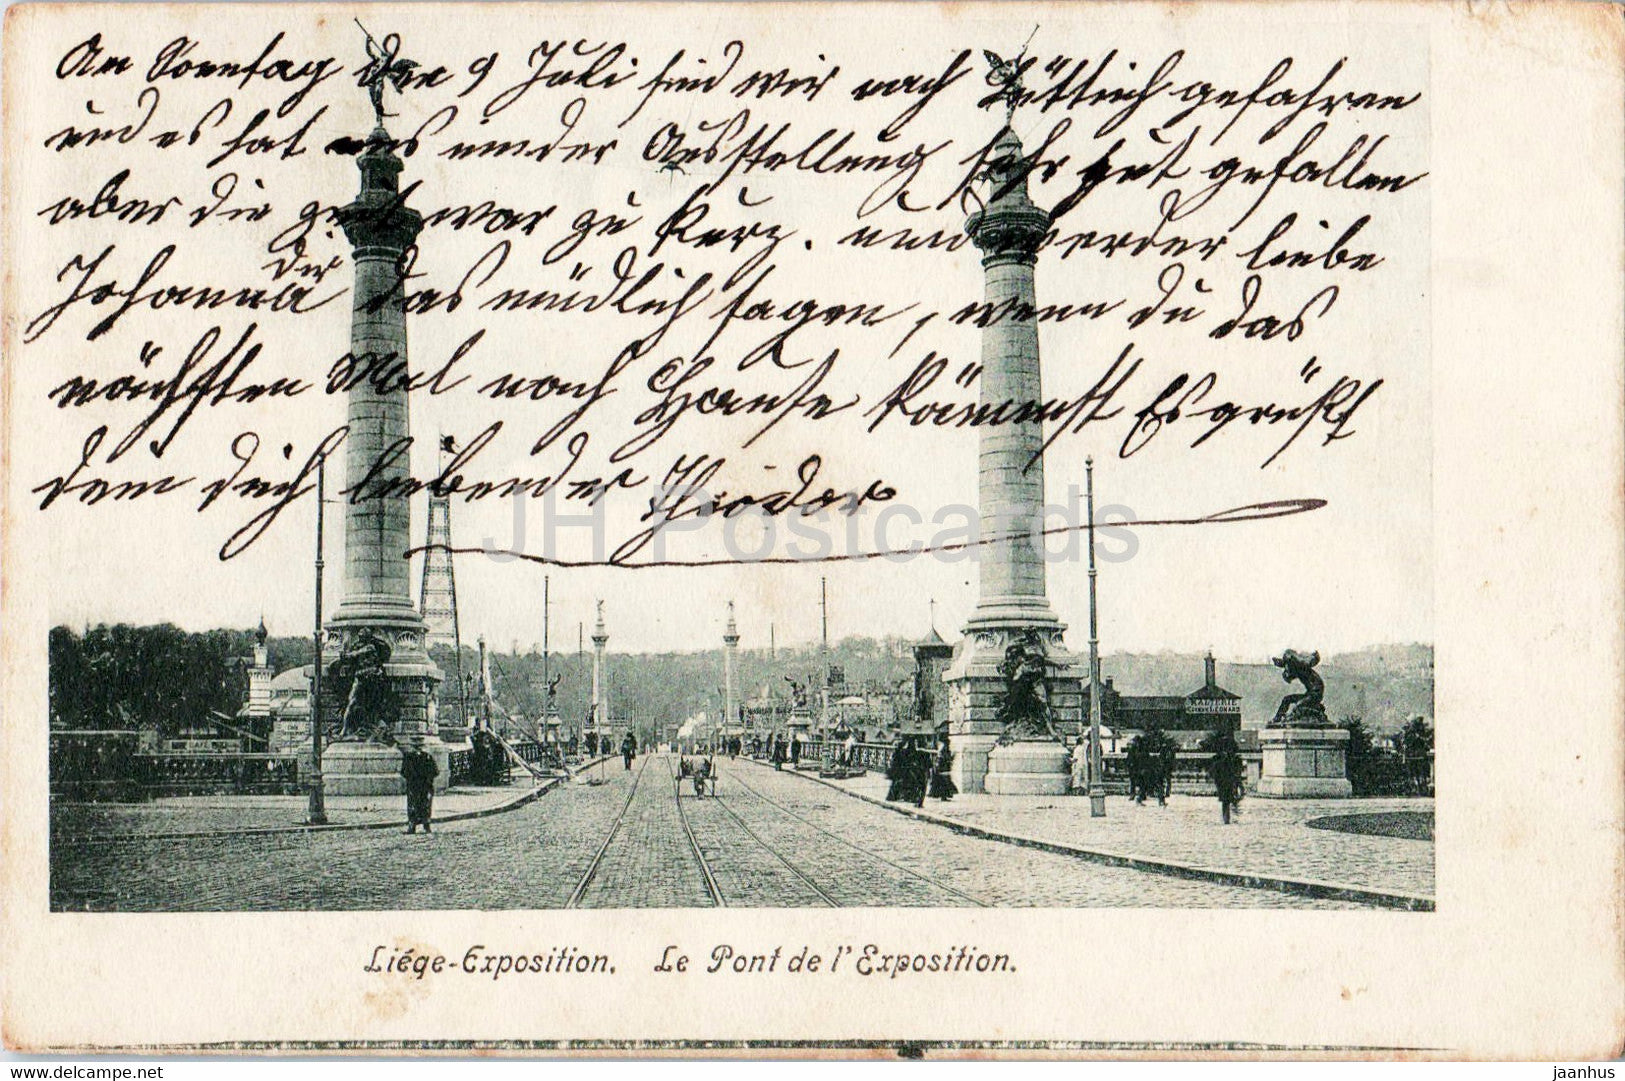 An Sonntag den 9 Juli sind wir nach Lüttich gefahren
und es hat uns in der Ausstellung sehr gut gefallen
aber die zeit war zu Kurz. und werder liebe
dir
Johanna das mündlich sagen, wenn du das
nächsten Mal nach Hause kömmst Es grüßt
dein dich liebender Theodor
JH Postcards
CAFÉ
Liége-Exposition. Le Pont de l'Exposition.
delcampe.net
jaanhus